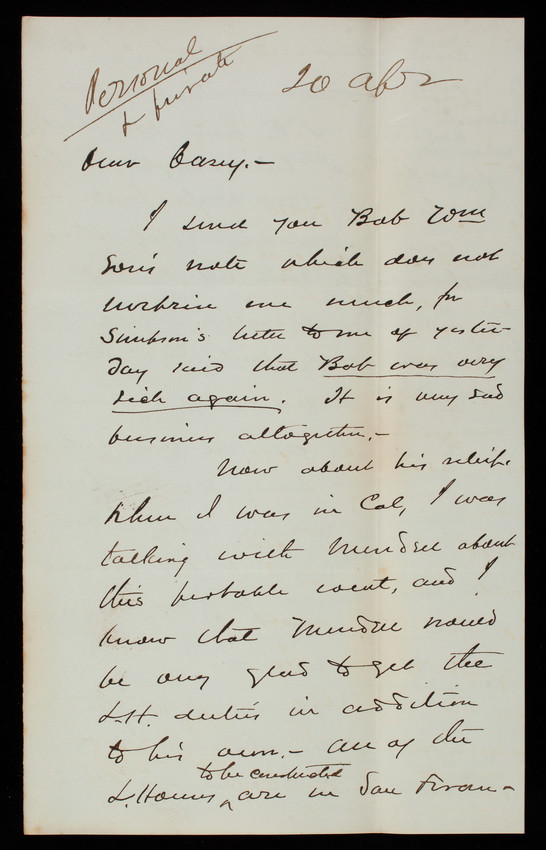 Personal
& private
20 Apr
Dear Casey.-
I send you Bob Wm
son's note which does not
surprise me much, for
Simpson's letter to me of yester-
day said that Bob was very
sick again. It is very sad
business altogether.-
Now about his relief.
When I was in Cal, I was
talking with Mendell about
this probable event, and I
know that Mendell would
be very glad to get the
L.H. duties in addition
to his own.- All of the
to be constructed
L. Houses ^ are in San Fran-